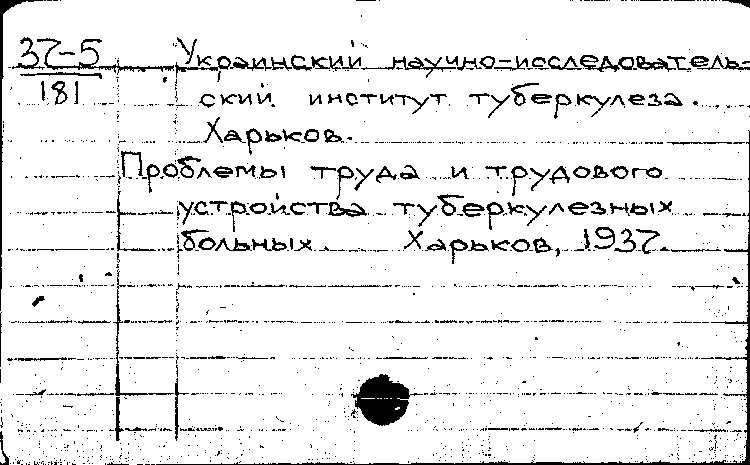 37-5 Украинский научно-исследователь-
181 ский институт туберкулеза.
Харьков.
Проблемы труда и трудового
устройства туберкулезных
больных. Харьков, 1937.